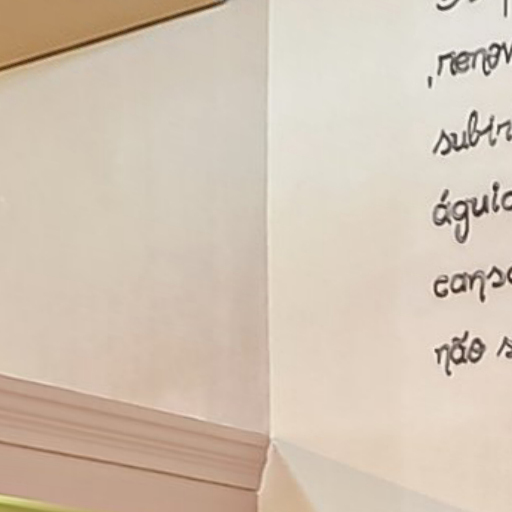 ,renov
subir
águic
canso
não s